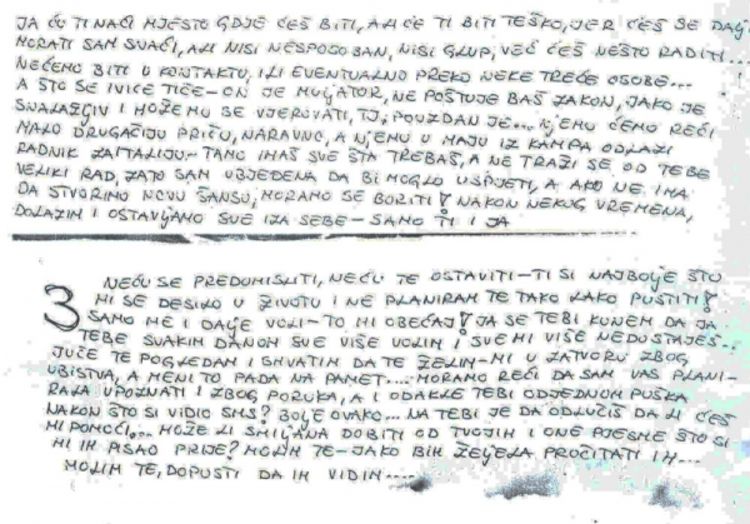 JA ĆU TI NAĆI MJESTO GDJE ĆEŠ BITI, ALI ĆE TI BITI TEŠKO, JER ĆEŠ SE DALJE
MORATI SAM SNAĆI, ALI NISI NESPOSOBAN, NISI GLUP, VEĆ ĆEŠ NEŠTO RADITI...
NEĆEMO BITI U KONTAKTU, ILI EVENTUALNO PREKO NEKE TREĆE OSOBE...
A ŠTO SE IVICE TIČE - ON JE MULJATOR, NE POŠTUJE BAŠ ZAKON, JAKO JE
SNALAŽLJIV I MOŽEMO SE VJEROVATI, TJ. POUZDAN JE... NJEMU ĆEMO REĆI
MALO DRUGAČIJU PRIČU, NARAVNO, A NJEMU U MAJU IZ KAMPA ODLAZI
RADNIK ZA ITALIJU - TAMO IMAŠ SVE ŠTA TREBAŠ, A NE TRAŽI SE OD TEBE
VELIKI RAD, ZATO SAM UBJEĐENA DA BI MOGLO USPJETI, A AKO NE IMA
DA STVORIMO NOVU ŠANSU, MORAMO SE BORITI! NAKON NEKOG VREMENA,
DOLAZIM I OSTAVLJAMO SVE IZA SEBE - SAMO TI I JA
3 NEĆU SE PREDOMISLITI, NEĆU TE OSTAVITI - TI SI NAJBOLJE ŠTO
MI SE DESILO U ŽIVOTU I NE PLANIRAM TE TAKO LAKO PUSTITI!
SAMO ME I DALJE VOLI - TO MI OBEĆAJ! JA SE TEBI KUNEM DA JA
TEBE SVAKIM DANOM SVE VIŠE VOLIM I SVE MI VIŠE NEDOSTAJEŠ...
JUČE TE POGLEDAM I SHVATIM DA TE ŽELIM - MI U ZATVORU ZBOG
UBISTVA, A MENI TO PADA NA PAMET.... MORAMO REĆI DA SAM VAS PLANI-
RALA UPOZNATI I ZBOG PORUKA, A I ODAKLE TEBI ODJEDNOM PUŠKA
NAKON ŠTO SI VIDIO SMS? BOLJE OVAKO... NA TEBI JE DA ODLUČIŠ DA LI ĆEŠ
MI POMOĆI... MOŽE LI SMILJANA DOBITI OD TVOJIH I ONE PJESME ŠTO SI
MI IH PISAO PRIJE? MOLIM TE - JAKO BIH ŽELJELA PROČITATI IH...
MOLIM TE, DOPUSTI DA IH VIDIM....